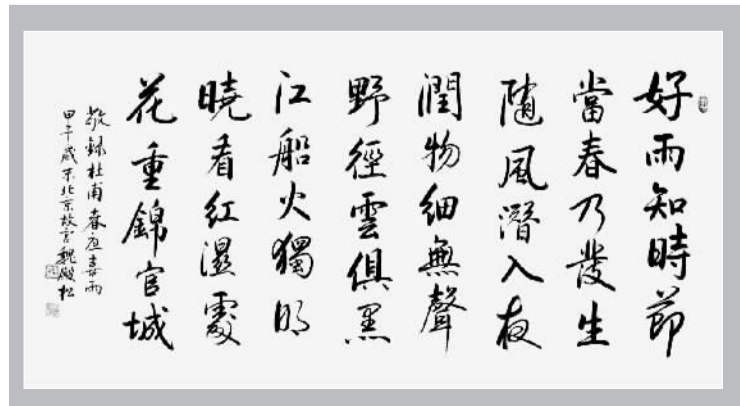 好雨知時節
當春乃發生
隨風潛入夜
潤物細無聲
野徑雲俱黑
江船火獨明
曉看紅濕處
花重錦官城
敬錄杜甫春夜喜雨
甲午歲末北京故宮魏殿松